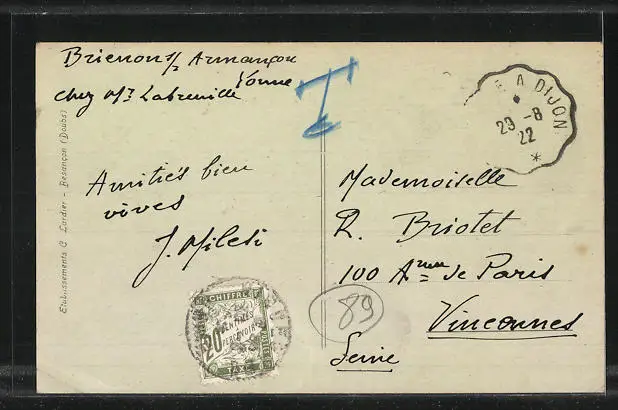 Brienon s/ Armançon
Yonne
chez Mr Labreuille
Amitiés bien
vives
J. Milesi
Etablissements C. Lardier - Besançon (Doubs)
T
A DIJON
29 -8
22
*
Mademoiselle
R. Briotet
100 Anue de Paris
Vincennes
Seine
89
CHIFFRE
20
CENTIMES
A PERCEVOIR
TAXE